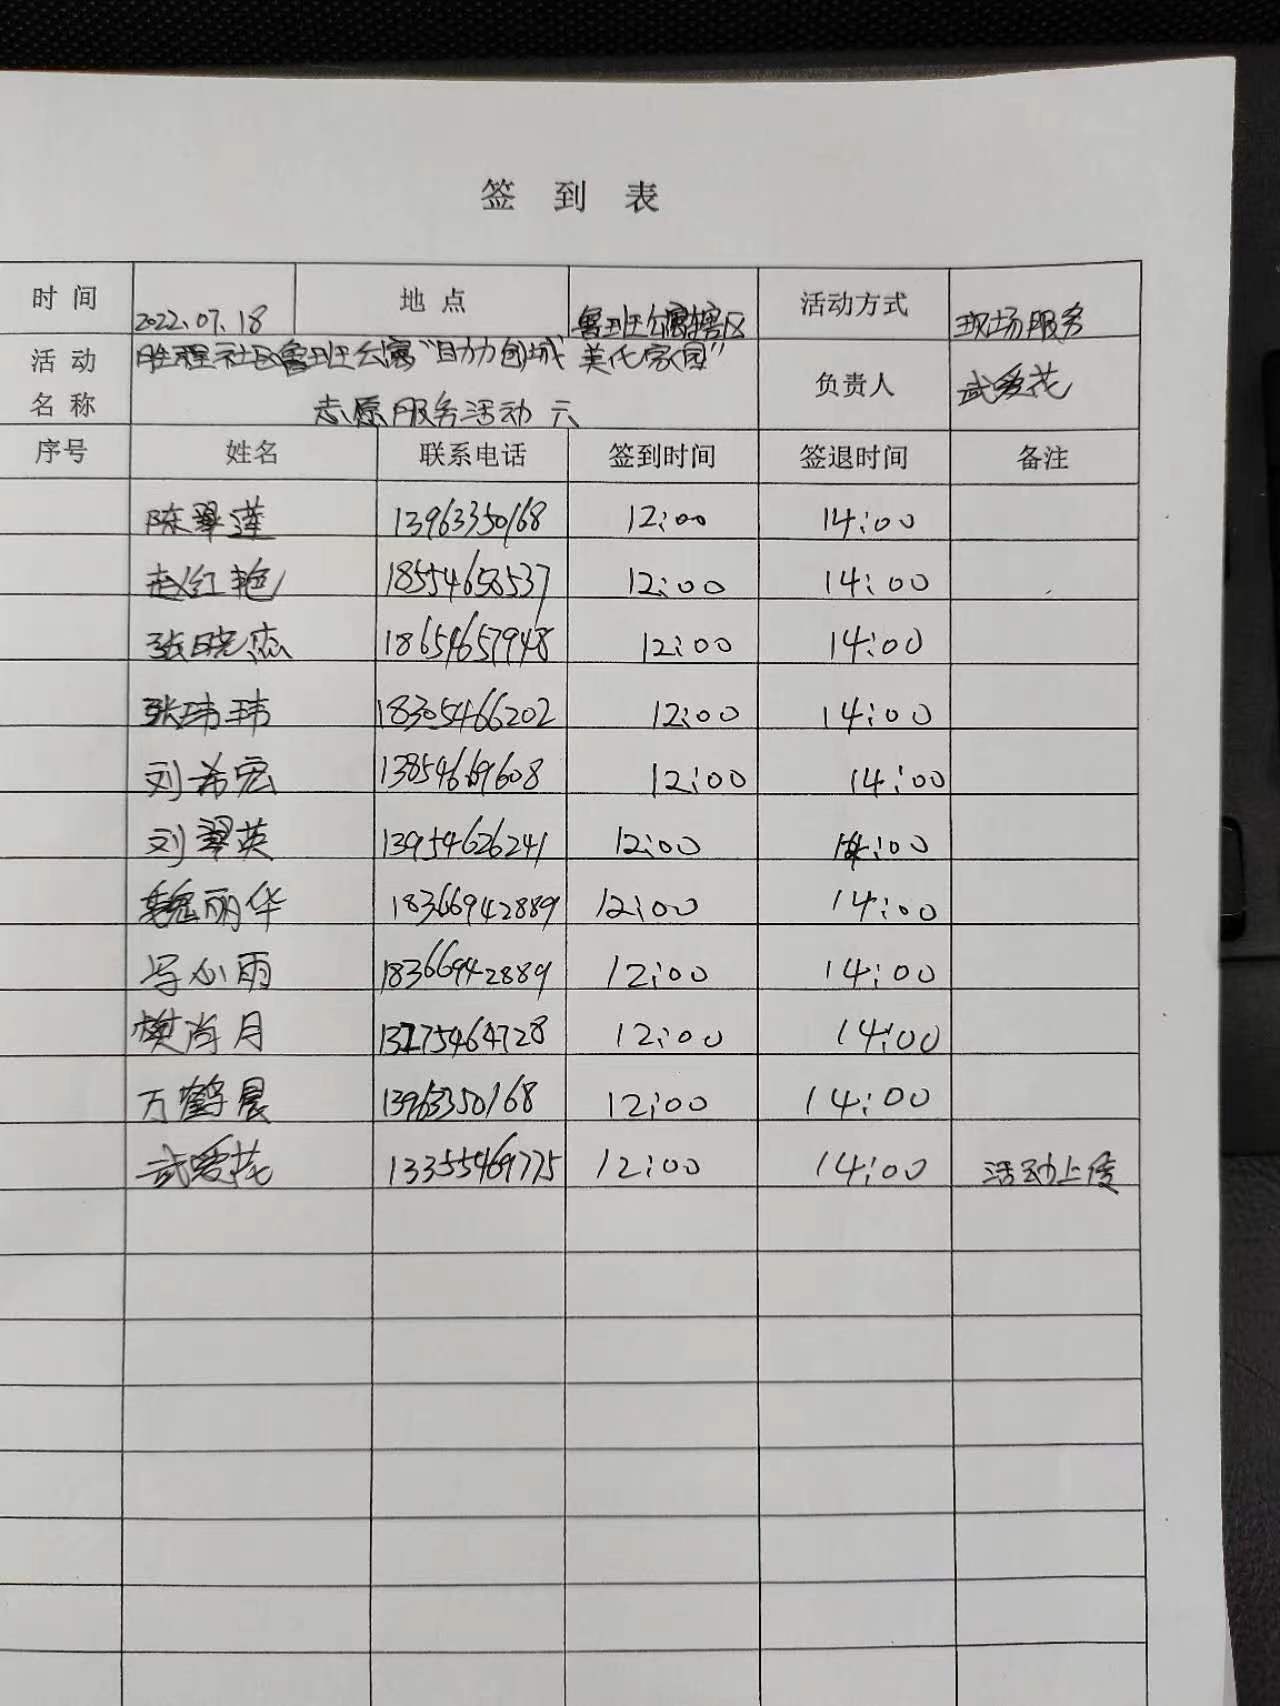 签 到 表
时 间 2022.07.18 地 点 鲁班公寓辖区 活动方式 现场服务
活 动 名 称 胜程社区鲁班公寓“助力创城 美化家园” 负责人 武爱花
志愿服务活动 六
序号 姓名 联系电话 签到时间 签退时间 备注
陈翠莲 13963350168 12:00 14:00
赵红艳 18554658537 12:00 14:00
张晓杰 18654657948 12:00 14:00
张玮玮 18305466202 12:00 14:00
刘希宏 13854669608 12:00 14:00
刘翠英 13954626241 12:00 14:00
魏丽华 18366942889 12:00 14:00
心雨 18366942889 12:00 14:00
樊肖月 12:00 14:00
万鹤晨 13963350168 12:00 14:00
武爱花 13355469775 12:00 14:00 活动上传